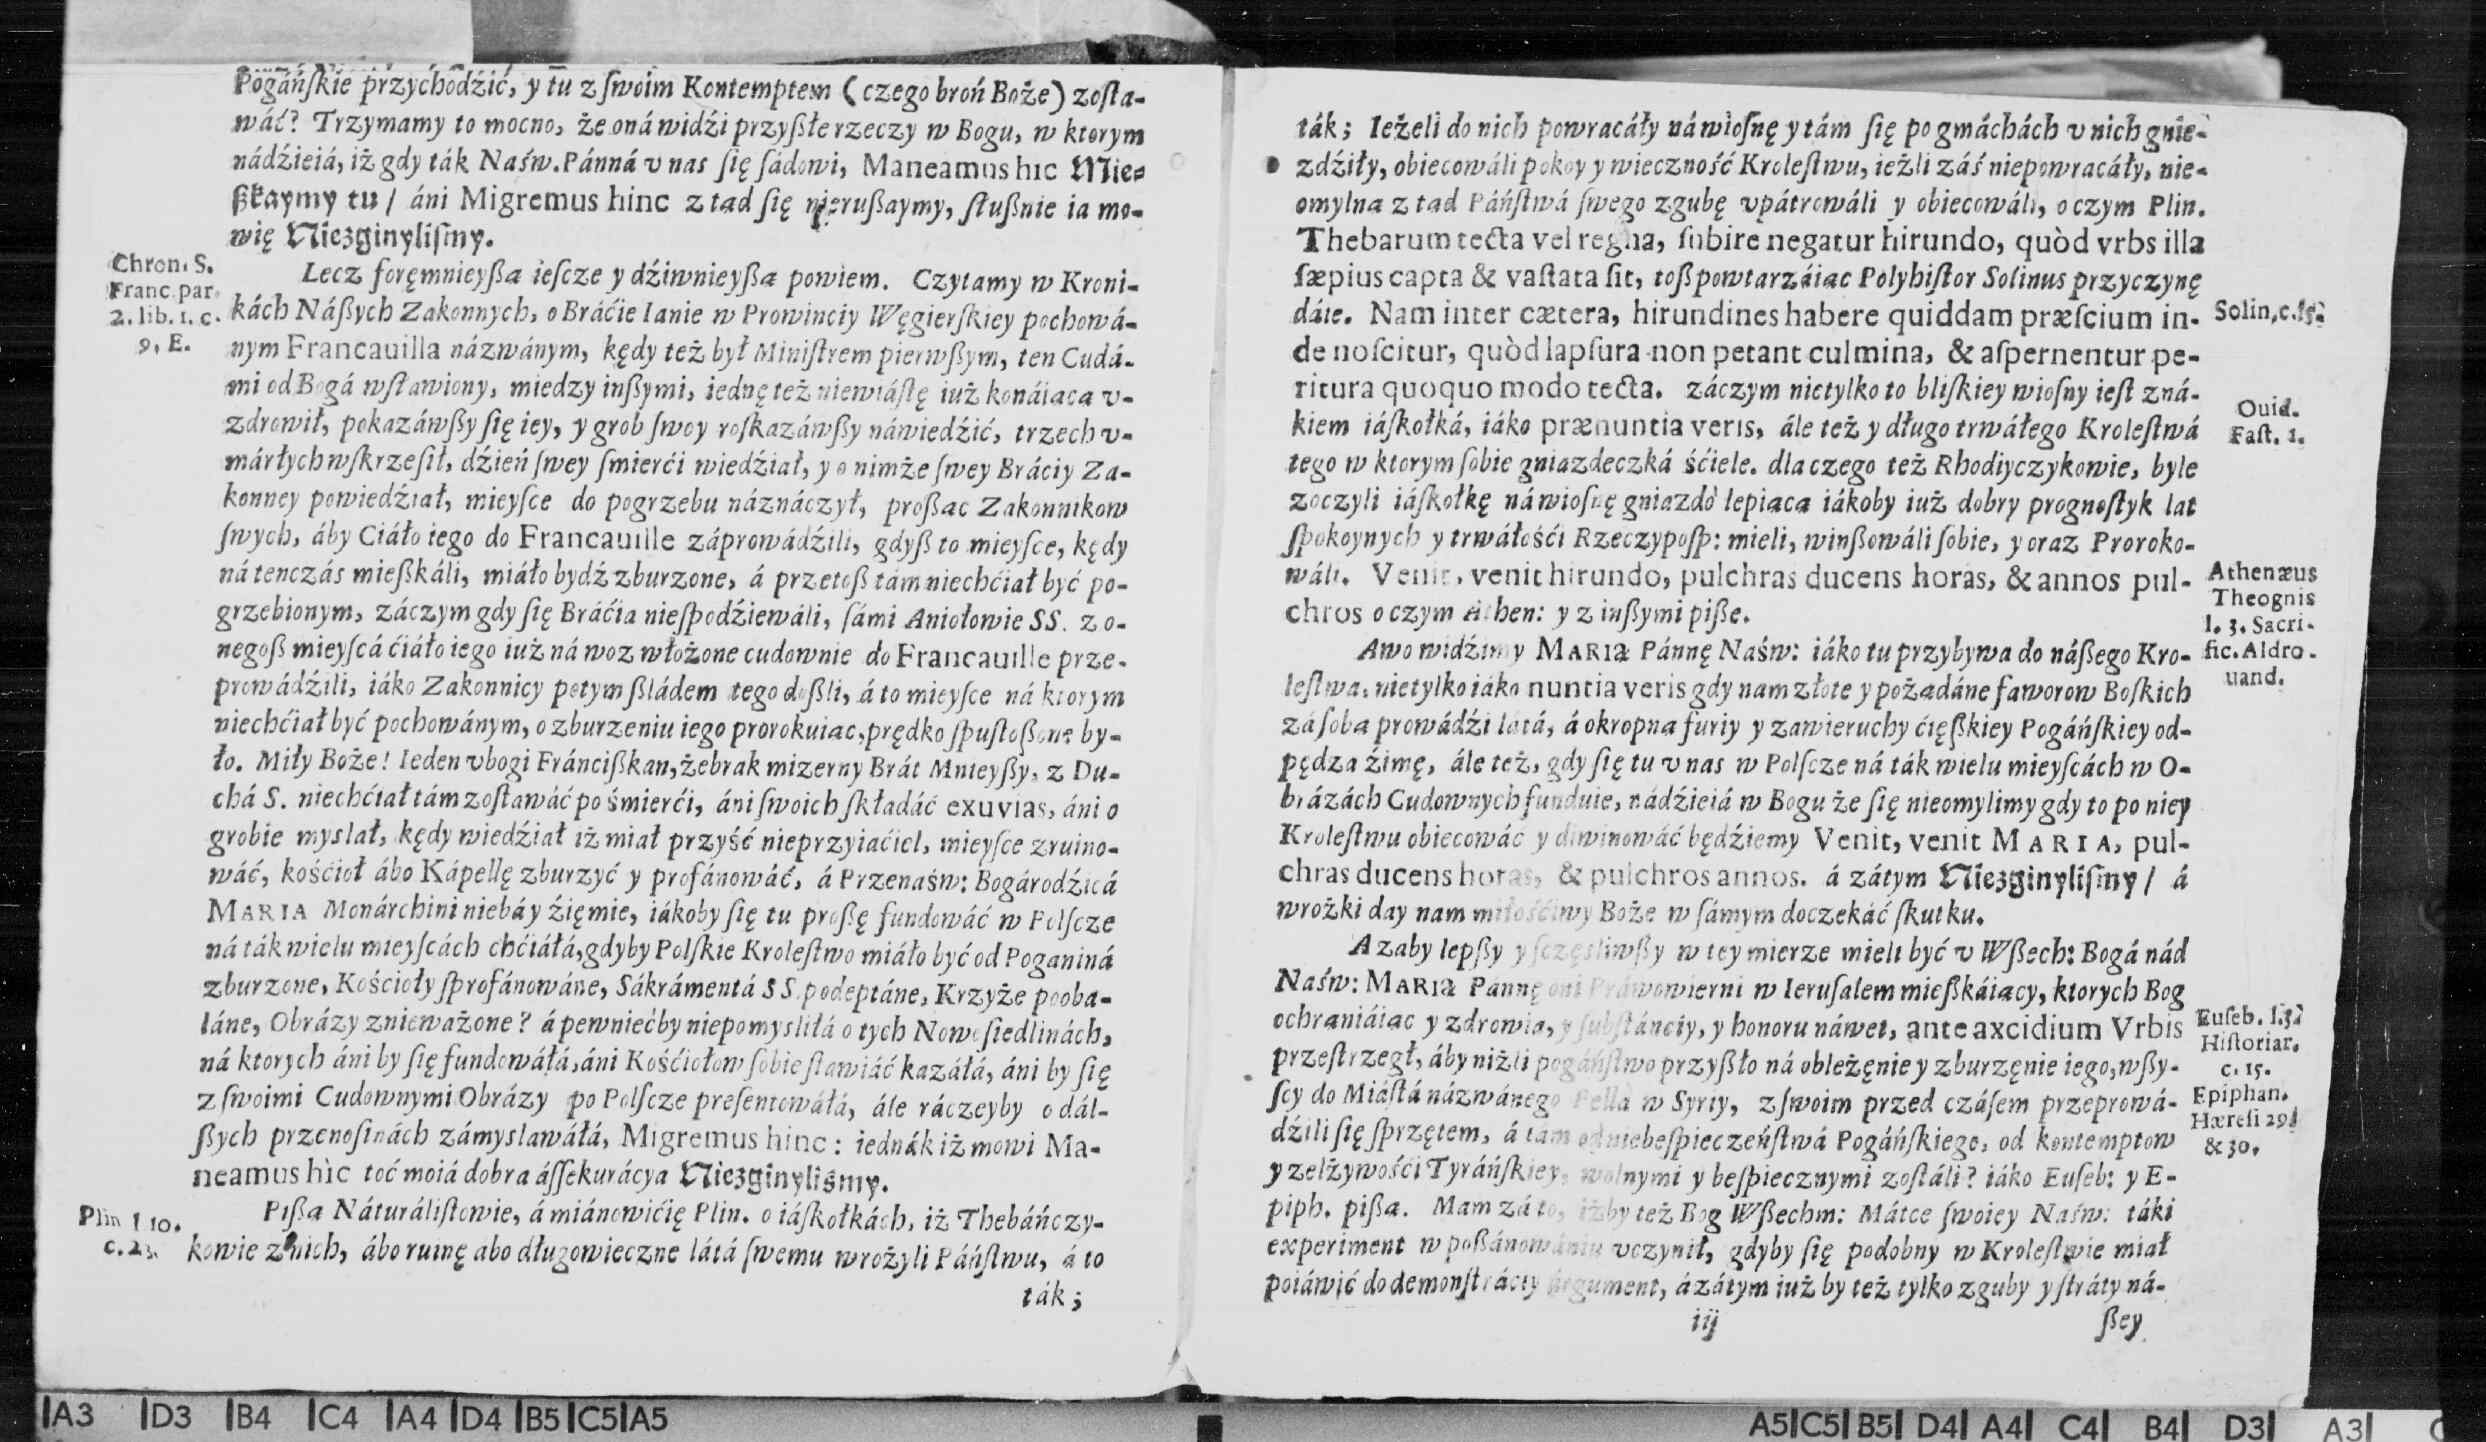 Pogáńſkie przychodźić, y tu z ſwoim Kontemptem (czego broń Boże) zoſta-
wáć? Trzymamy to mocno, że oná widźi przyßłe rzeczy w Bogu, w ktorym
nádźieiá, iż gdy ták Naśw. Pánná v nas ſię ſádowi, Maneamus hic Mie-
ßkaymy tu / áni Migremus hinc z tad ſię nierußaymy, ſłußnie ia mo-
wię Niezginęliſmy.
Chron. S.
Franc. par.
2. lib. 1. c.
9, E.
Lecz foręmnieyßa ieſcze y dźiwnieyßa powiem. Czytamy w Kroni-
kách Náßych Zakonnych, o Bráćie Ianie w Prowinciy Węgierſkiey pochowá-
nym Francauilla názwánym, kędy też był Miniſtrem pierwßym, ten Cudá-
mi od Bogá wſławiony, miedzy inßymi, iednę też niewiáſtę iuż konáiaca v-
zdrowił, pokazáwßy ſię iey, y grob ſwoy roſkazáwßy náwiedźić, trzech v-
márłych wſkrzeſił, dźień ſwey ſmierći wiedźiał, y o nimże ſwey Bráciy Za-
konney powiedźiał, mieyſce do pogrzebu náznáczył, proßac Zakonnikow
ſwych, áby Ciáło iego do Francauille záprowádźili, gdyß to mieyſce, kędy
ná tenczás mießkáli, miáło bydź zburzone, á przetoß tám niechćiał być po-
grzebionym, záczym gdy ſię Bráćia nieſpodźiewáli, ſámi Aniołowie SS. z o-
negoß mieyſcá ćiáło iego iuż ná woz włożone cudownie do Francauille prze-
prowádźili, iáko Zakonnicy potym ßládem tego doßli, á to mieyſce ná ktorym
niechćiał być pochowánym, o zburzeniu iego prorokuiac, prędko ſpuſtoßone by-
ło. Miły Boże! Ieden vbogi Fránćißkan, żebrak mizerny Brát Mnieyßy, z Du-
chá S. niechćiał tám zoſtawáć po śmierći, áni ſwoich ſkłádáć exuvias, áni o
grobie myslał, kędy wiedźiał iż miał przyść nieprzyiaćiel, mieyſce zruino-
wáć, kośćioł ábo Kápellę zburzyć y profánowáć, á Przenaśw: Bogárodźicá
MARIA Monárchini niebá y źięmie, iákoby ſię tu proßę fundowáć w Polſcze
ná ták wielu mieyſcách chćiáłá, gdyby Polſkie Kroleſtwo miáło być od Poganiná
zburzone, Kościoły ſprofánowáne, Sákrámentá SS. podeptáne, Krzyże pooba-
láne, Obrázy znieważone? á pewniećby niepomysliłá o tych Nowoſiedlinách,
ná ktorych áni by ſię fundowáłá, áni Kośćiołow ſobie ſtawiáć kazáłá, áni by ſię
z ſwoimi Cudownymi Obrázy po Polſcze preſentowáłá, ále ráczeyby o dál-
ßych przenoſinách zámyslawáłá, Migremus hinc: iednák iż mowi Ma-
neamus hic toć moiá dobra áſſekurácya Niezginęliśmy.
Plin l 10.
c. 23.
Pißa Náturáliſtowie, á miánowićię Plin. o iáſkołkách, iż Thebáńczy-
kowie z nich, ábo ruinę abo długowieczne látá ſwemu wrożyli Páńſtwu, á to
ták;
ták; Ieżeli do nich powracáły ná wioſnę y tám ſię po gmáchách v nich gnie-
zdźiły, obiecowáli pokoy y wieczność Kroleſtwu, ieżli záś niepowracáły, nie-
omylna z tad Páńſtwá ſwego zgubę vpátrowáli y obiecowáli, o czym Plin.
Thebarum tecta vel regna, ſubire negatur hirundo, quòd vrbs illa
ſæpius capta & vaſtata ſit, toß powtarzáiac Polyhiſtor Solinus przyczynę
dáie. Nam inter cætera, hirundines habere quiddam præſcium in-
de noſcitur, quòd lapſura non petant culmina, & aſpernentur pe-
ritura quoquo modo tecta. záczym nietylko to bliſkiey wioſny ieſt zná-
kiem iáſkołká, iáko prænuntia veris, ále też y długo trwáłego Kroleſtwá
tego w ktorym ſobie gniazdeczká śćiele. dla czego też Rhodiyczykowie, byle
zoczyli iáſkołkę ná wioſnę gniazdo lepiaca iákoby iuż dobry prognoſtyk lat
ſpokoynych y trwáłośći Rzeczypoſp: mieli, winßowáli ſobie, y oraz Proroko-
wáli. Venit, venit hirundo, pulchras ducens horas, & annos pul-
chros o czym Athen: y z inßymi piße.
Solin, c. 15.
Ouid.
Faſt. 1.
Athenæus
Theognis
l. 3. Sacri-
fic. Aldro-
uand.
Awo widźimy MARIA Pánnę Naśw: iáko tu przybywa do náßego Kro-
leſtwa, nietylko iáko nuntia veris gdy nam złote y pożadáne faworow Boſkich
zá ſoba prowádźi látá, á okropna furiy y zawieruchy ćięßkiey Pogáńſkiey od-
pędza źimę, ále też, gdy ſię tu v nas w Polſcze ná ták wielu mieyſcách w O-
brázách Cudownych funduie, nádźieiá w Bogu że ſię nieomylimy gdy to po niey
Kroleſtwu obiecowáć y diwinowáć będźiemy Venit, venit MARIA, pul-
chras ducens horas, & pulchros annos. á zátym Niezginęliſmy / á
wrożki day nam miłośćiwy Boże w ſámym doczekáć ſkutku.
Azaby lepßy y ſczęsliwßy w tey mierze mieli być v Wßech: Bogá nád
Naśw: MARIA Pánnę oni Práwowierni w Ieruſalem mießkáiacy, ktorych Bog
ochraniáiac y zdrowia, y ſubſtánciy, y honoru náwet, ante axcidium Vrbis
przeſtrzegł, áby niżli pogáńſtwo przyßło ná obleżęnie y zburzęnie iego, wßy-
ſcy do Miáſtá názwánego Pella w Syriy, z ſwoim przed czáſem przeprowá-
dźili ſię ſprzętem, á tám od niebeſpieczeńſtwá Pogáńſkiego, od kontemptow
y zelżywośći Tyráńſkiey, wolnymi y beſpiecznymi zoſtáli? iáko Euſeb: y E-
piph. pißa. Mam zá to, iżby też Bog Wßechm: Mátce ſwoiey Naśw: táki
experiment w poßánowániu vczynił, gdyby ſię podobny w Kroleſtwie miał
poiáwić do demonſtráciy árgument, á zátym iuż by też tylko zguby y ſtráty ná-
Euſeb. l. 3.
Hiſtoriar.
c. 15.
Epiphan.
Hæreſi 29
& 30.
iij
ßey
A3 D3 B4 C4 A4 D4 B5 C5 A5
A5 C5 B5 D4 A4 C4 B4 D3 A3